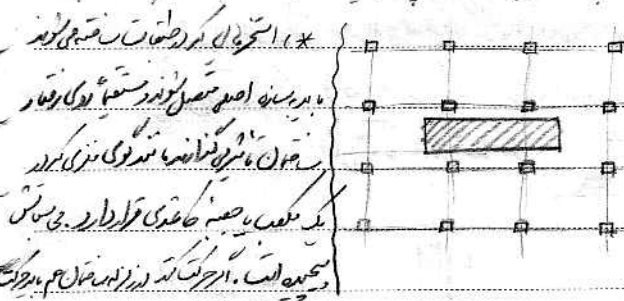 * ) استخرهایی که در طبقات ساخته می‌شوند
باید به سازه اصلی متصل شوند و مستقیماً روی رفتار
ساختمان تأثیر می‌گذارند مانند گوی فلزی که در
یک مکعب یا جعبه کاغذی قرار دارد.
پیچیده است. اگر حرکت کند در زلزله ساختمان هم باید حرکت